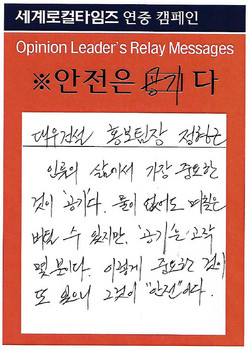 세계로컬타임즈 연중 캠페인
Opinion Leader's Relay Messages
※안전은 공기 다
대우건설 홍보팀장 정항근
인류의 삶에서 가장 중요한
것이 '공기'다. 물이 없어도 며칠은
버틸 수 있지만, '공기'는 고작
몇 분이다. 이렇게 중요한 것이
또 있으니 그것이 "안전"이다.